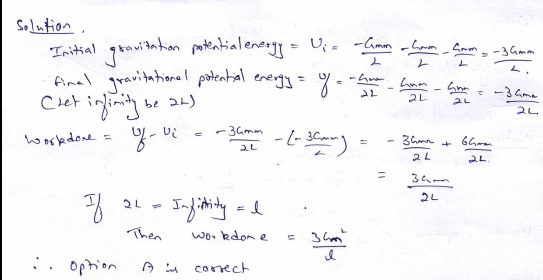 Solution.
Initial gravitation potential energy = Ui = -Gmm/L - Gmm/L - Gmm/L = -3Gmm/L.
final gravitational potential energy = Uf = -Gmm/2L - Gmm/2L - Gmm/2L = -3Gmm/2L
(Let infinity be 2L)
workdone = Uf - Ui = -3Gmm/2L - (-3Gmm/L) = -3Gmm/2L + 6Gmm/2L.
= 3Gmm/2L
If 2L = Infinity = l
Then workdone = 3Gm²/l
∴ Option A is correct